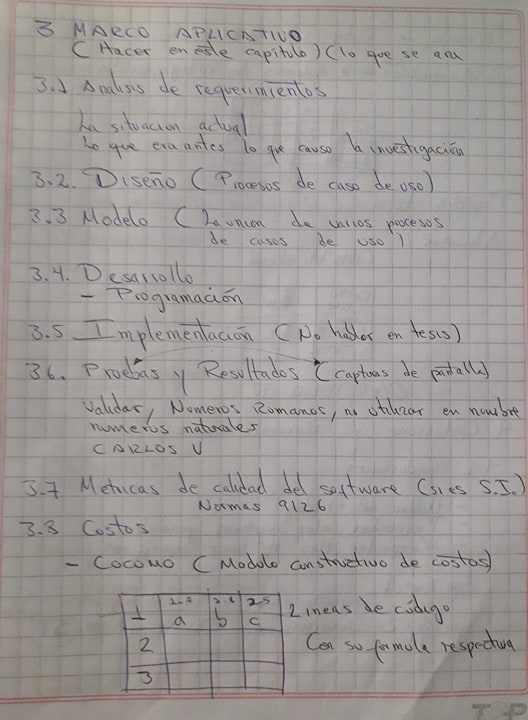 3 MARCO APLICATIVO
(Hacer en este capitulo) (lo que se ara
3.1 Analisis de requerimientos
La situacion actual
Lo que era antes lo que causo la investigación
3.2. Diseño (Procesos de caso de uso)
3.3 Modelo (La union de varios procesos
de casos de uso)
3.4. Desarrollo
- Programación
3.5 Implementación (No hablar en tesis)
3.6. Pruebas y Resultados (capturas de pantalla)
Validar, Numeros Romanos, no utilizar en nombre
numeros naturales
CARLOS V
3.7 Metricas de calidad del software (si es S.I.)
Normas 9126
3.8 Costos
- COCOMO (Modulo constructivo de costos)
1 a b c Lineas de código
2 Con su formula respectiva
3
TOP